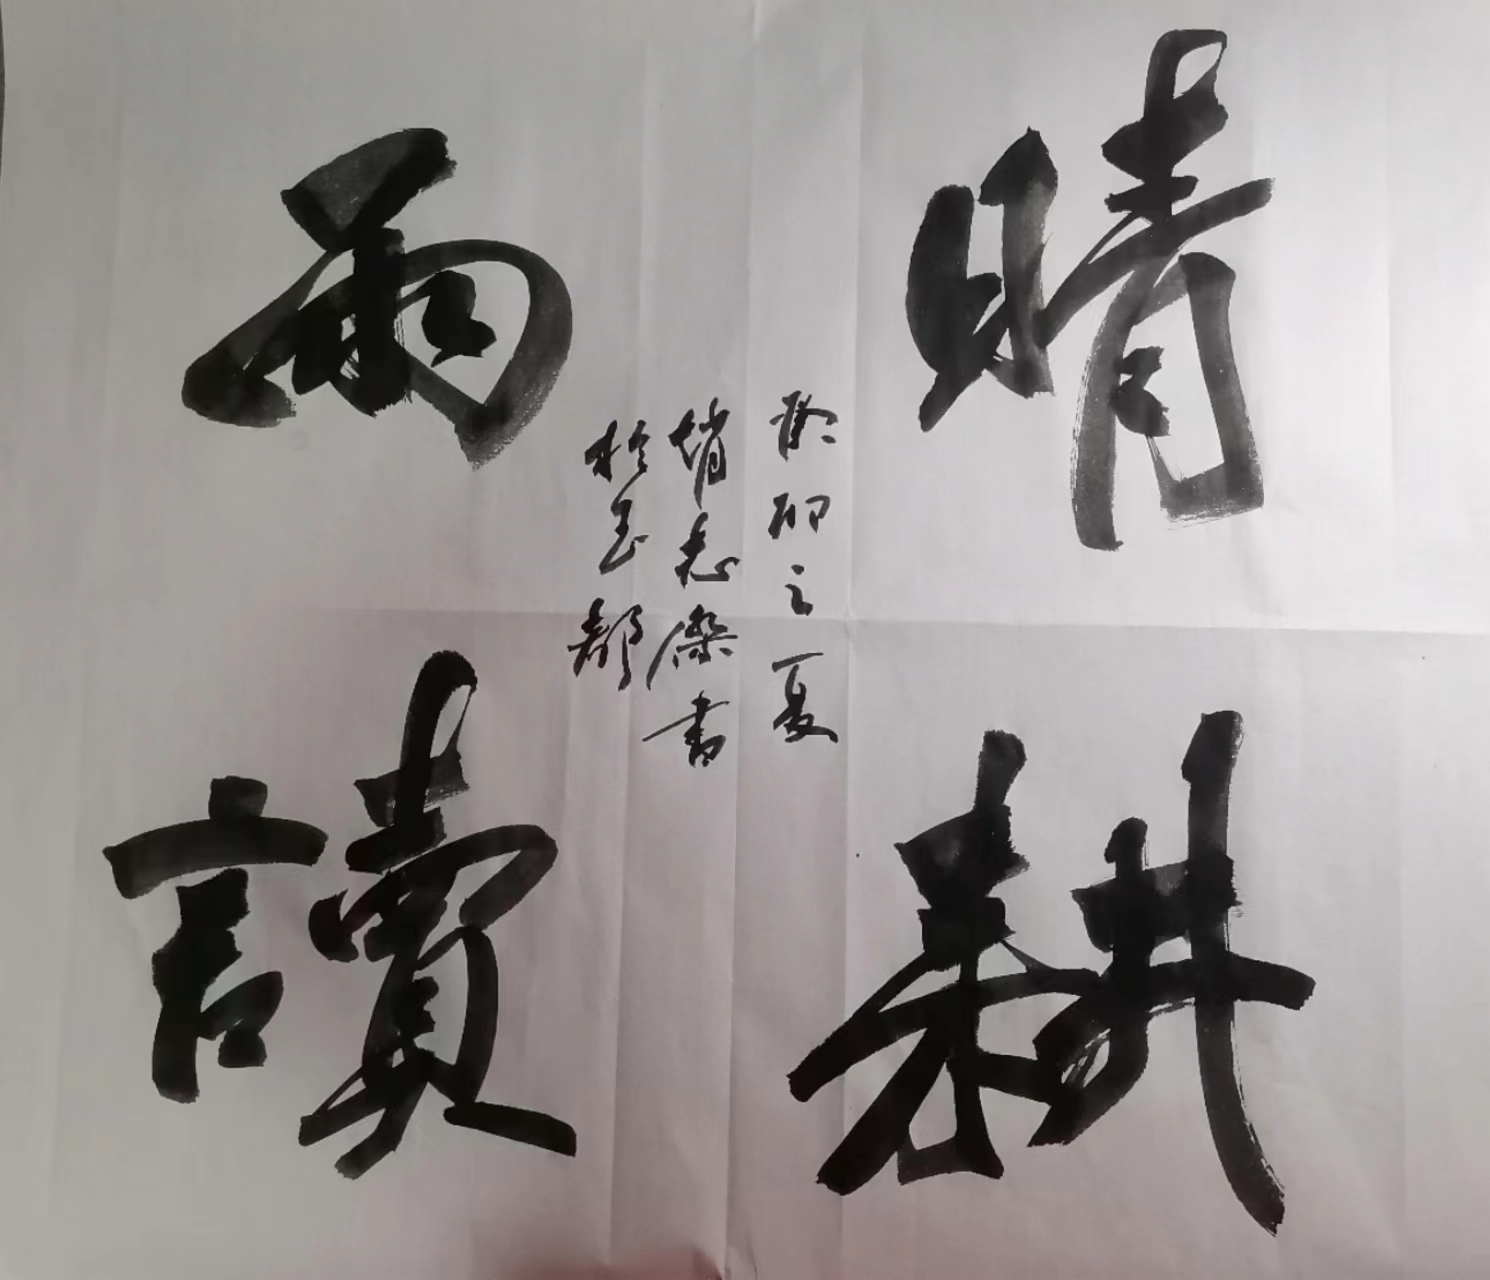 晴耕
雨讀
癸卯之夏
趙志傑書
於玉都